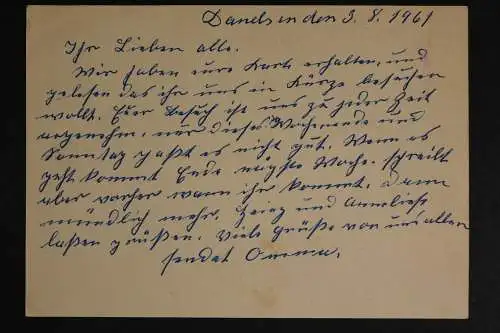 Danelsen den 3. 8. 1961
Ihr Lieben alle.
Wir haben eure Karte erhalten, und
gelesen das ihr uns in Kürze besuchen
wollt. Euer Besuch ist uns zu jeder Zeit
angenehm, nur dieses Wochenende und
Sonntag paßt es nicht gut. Wenn es
geht kommt Ende nächste Woche. schreibt
aber vorher wann ihr kommt. Dann
mündlich mehr. Heinz und Annelies
laßen grüßen. Viele grüße von uns allen
sendet Omma.